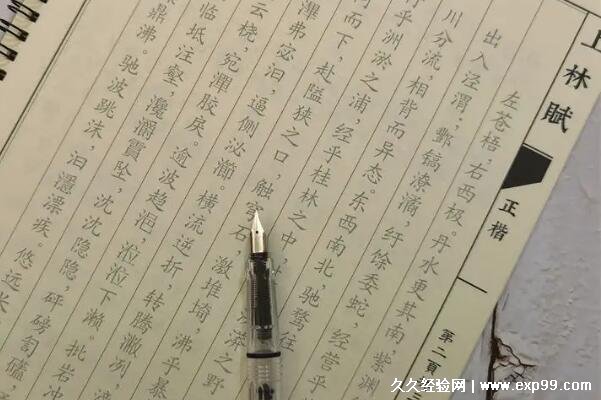 林賦
正楷
第二頁
左苍梧，右西极。丹水更其南，紫渊
出入泾渭，酆镐潦潏，纡馀委蛇，经营乎
川分流，相背而异态。东西南北，驰骛往
乎洲淤之浦，经乎桂林之中，漭之野
而下，赴隘狭之口，触石，激堆埼，沸乎暴
滭弗宓汩，逼侧泌瀄。横流逆折，转腾潎洌，
云桡，宛潬胶戾。逾波趋浥，涖涖下濑。批岩冲
临坻注壑，瀺灂霣坠，沈沈隐隐，砰磅訇礚
鼎沸。驰波跳沫，汩㶀漂疾。悠远
久久经验网 www.exp99.com